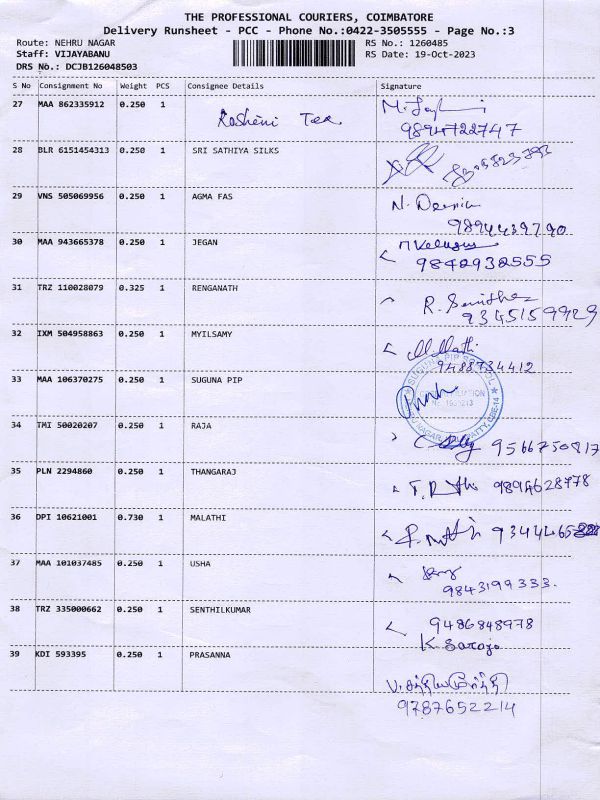 THE PROFESSIONAL COURIERS, COIMBATORE
Delivery Runsheet - PCC - Phone No.:0422-3505555 - Page No.:3
Route: NEHRU NAGAR RS No.: 1260485
Staff: VIJAYABANU RS Date: 19-Oct-2023
DRS No.: DCJB126048503
S No Consignment No Weight PCS Consignee Details Signature
27 MAA 862335912 0.250 1 Roshini Tex
9894722747
28 BLR 6151454313 0.250 1 SRI SATHIYA SILKS
29 VNS 505069956 0.250 1 AGMA FAS N. Devi
9894439790
30 MAA 943665378 0.250 1 JEGAN
9842932555
31 TRZ 110028079 0.325 1 RENGANATH R.
9345159929
32 IXM 504958863 0.250 1 MYILSAMY
9488734412
33 MAA 106370275 0.250 1 SUGUNA PIP SUGUNA PIP SCHOOL
34 TMI 50020207 0.250 1 RAJA 9566750817
35 PLN 2294860 0.250 1 THANGARAJ 9894628778
36 DPI 10621001 0.730 1 MALATHI
37 MAA 101037485 0.250 1 USHA
9843199333.
38 TRZ 335000662 0.250 1 SENTHILKUMAR 9486848978
K Saroja
39 KDI 593395 0.250 1 PRASANNA
9787652214